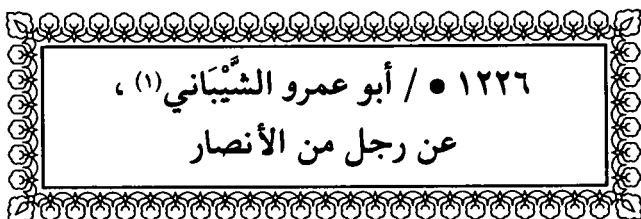 ١٢٢٦ • / أبو عمرو الشَّيْبَاني(١) ،
عن رجل من الأنصار